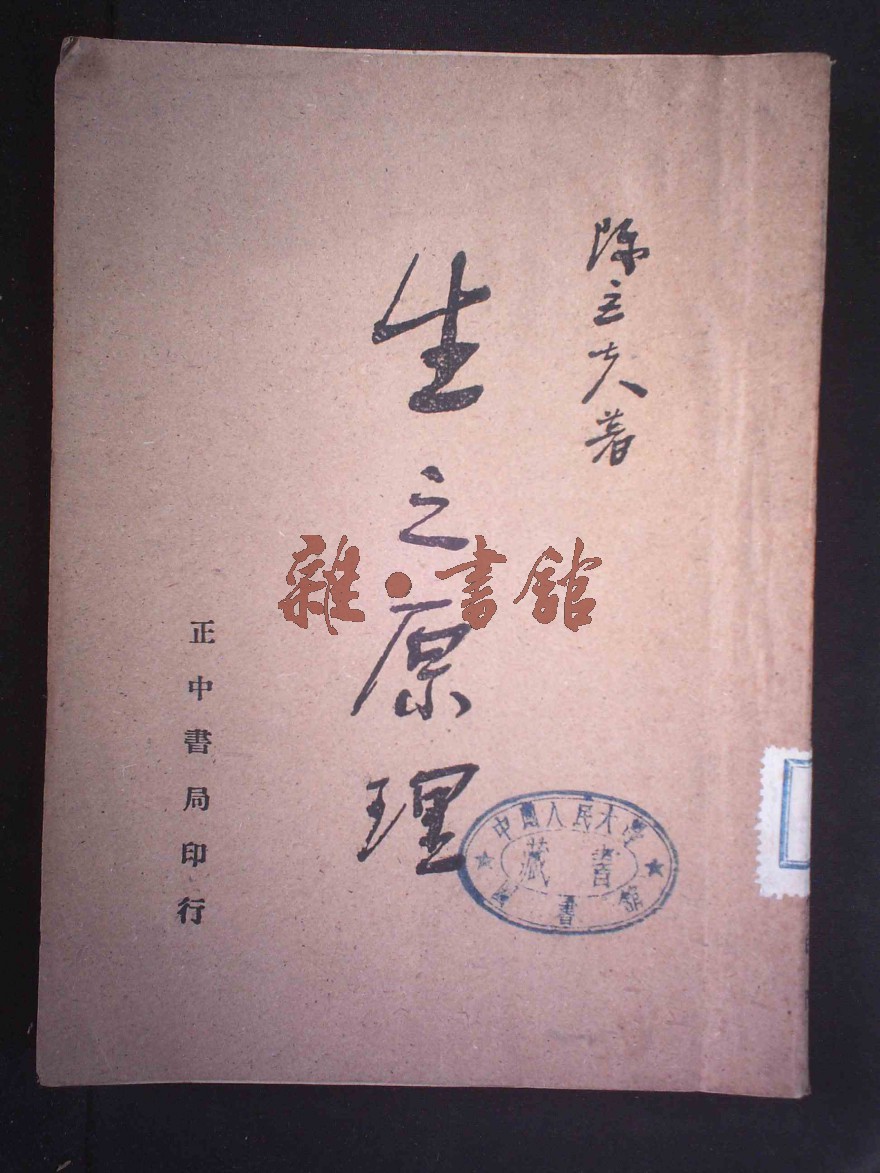 陳立夫著
生之原理
正中書局印行
雜·書舘
中國人民大學
藏書
圖書館